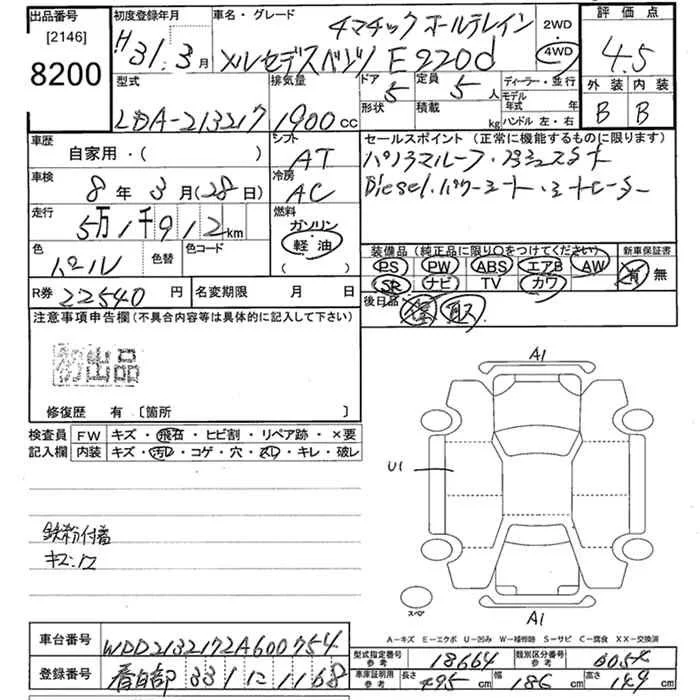 出品番号 初度登録年月 車名・グレード 4マチック オールテレイン 2WD 評価点
[2146] H31年3月 メルセデスベンツ E220d 4WD 4.5
8200
型式 排気量 ドア 定員 ディーラー・並行 外装 内装
LDA-213217 1900cc 5 5人 モデル年式 年 B B
形状 積載 kg ハンドル 左・右
車歴 シフト セールスポイント (正常に機能するものに限ります)
自家用・( ) AT パノラマルーフ・
車検 冷房 Diesel・パワーシート・シートヒーター
8年3月(28日) AC
走行 燃料
5万1千912km ガソリン・
軽油
( )
色 色替 色コード 装備品(純正品に限り○をつけてください) 新車保証書
パール PS PW ABS エアB AW 有 無
SR ナビ TV カワ
R券 22540円 名変期限 月 日 後日品 取ス
注意事項申告欄(不具合内容等は具体的に記入して下さい)
初出品
修復歴 有 〔箇所 〕
検査員 FW キズ・飛石・ヒビ割・リペア跡・×要
記入欄 内装 キズ・汚レ・コゲ・穴・スレ・キレ・破レ
A1
U1
鉄粉付着
キズ・凹
スペア
A1
A−キズ E−エクボ U−凹み W−補修跡 S−サビ C−腐食 XX−交換済
車台番号 WDD2132172A600754
型式指定番号 参考 18664 類別区分番号 参考
登録番号 春日部 331 1168
車庫証明用 参考 長さ 495cm 幅 186cm 高さ 149cm